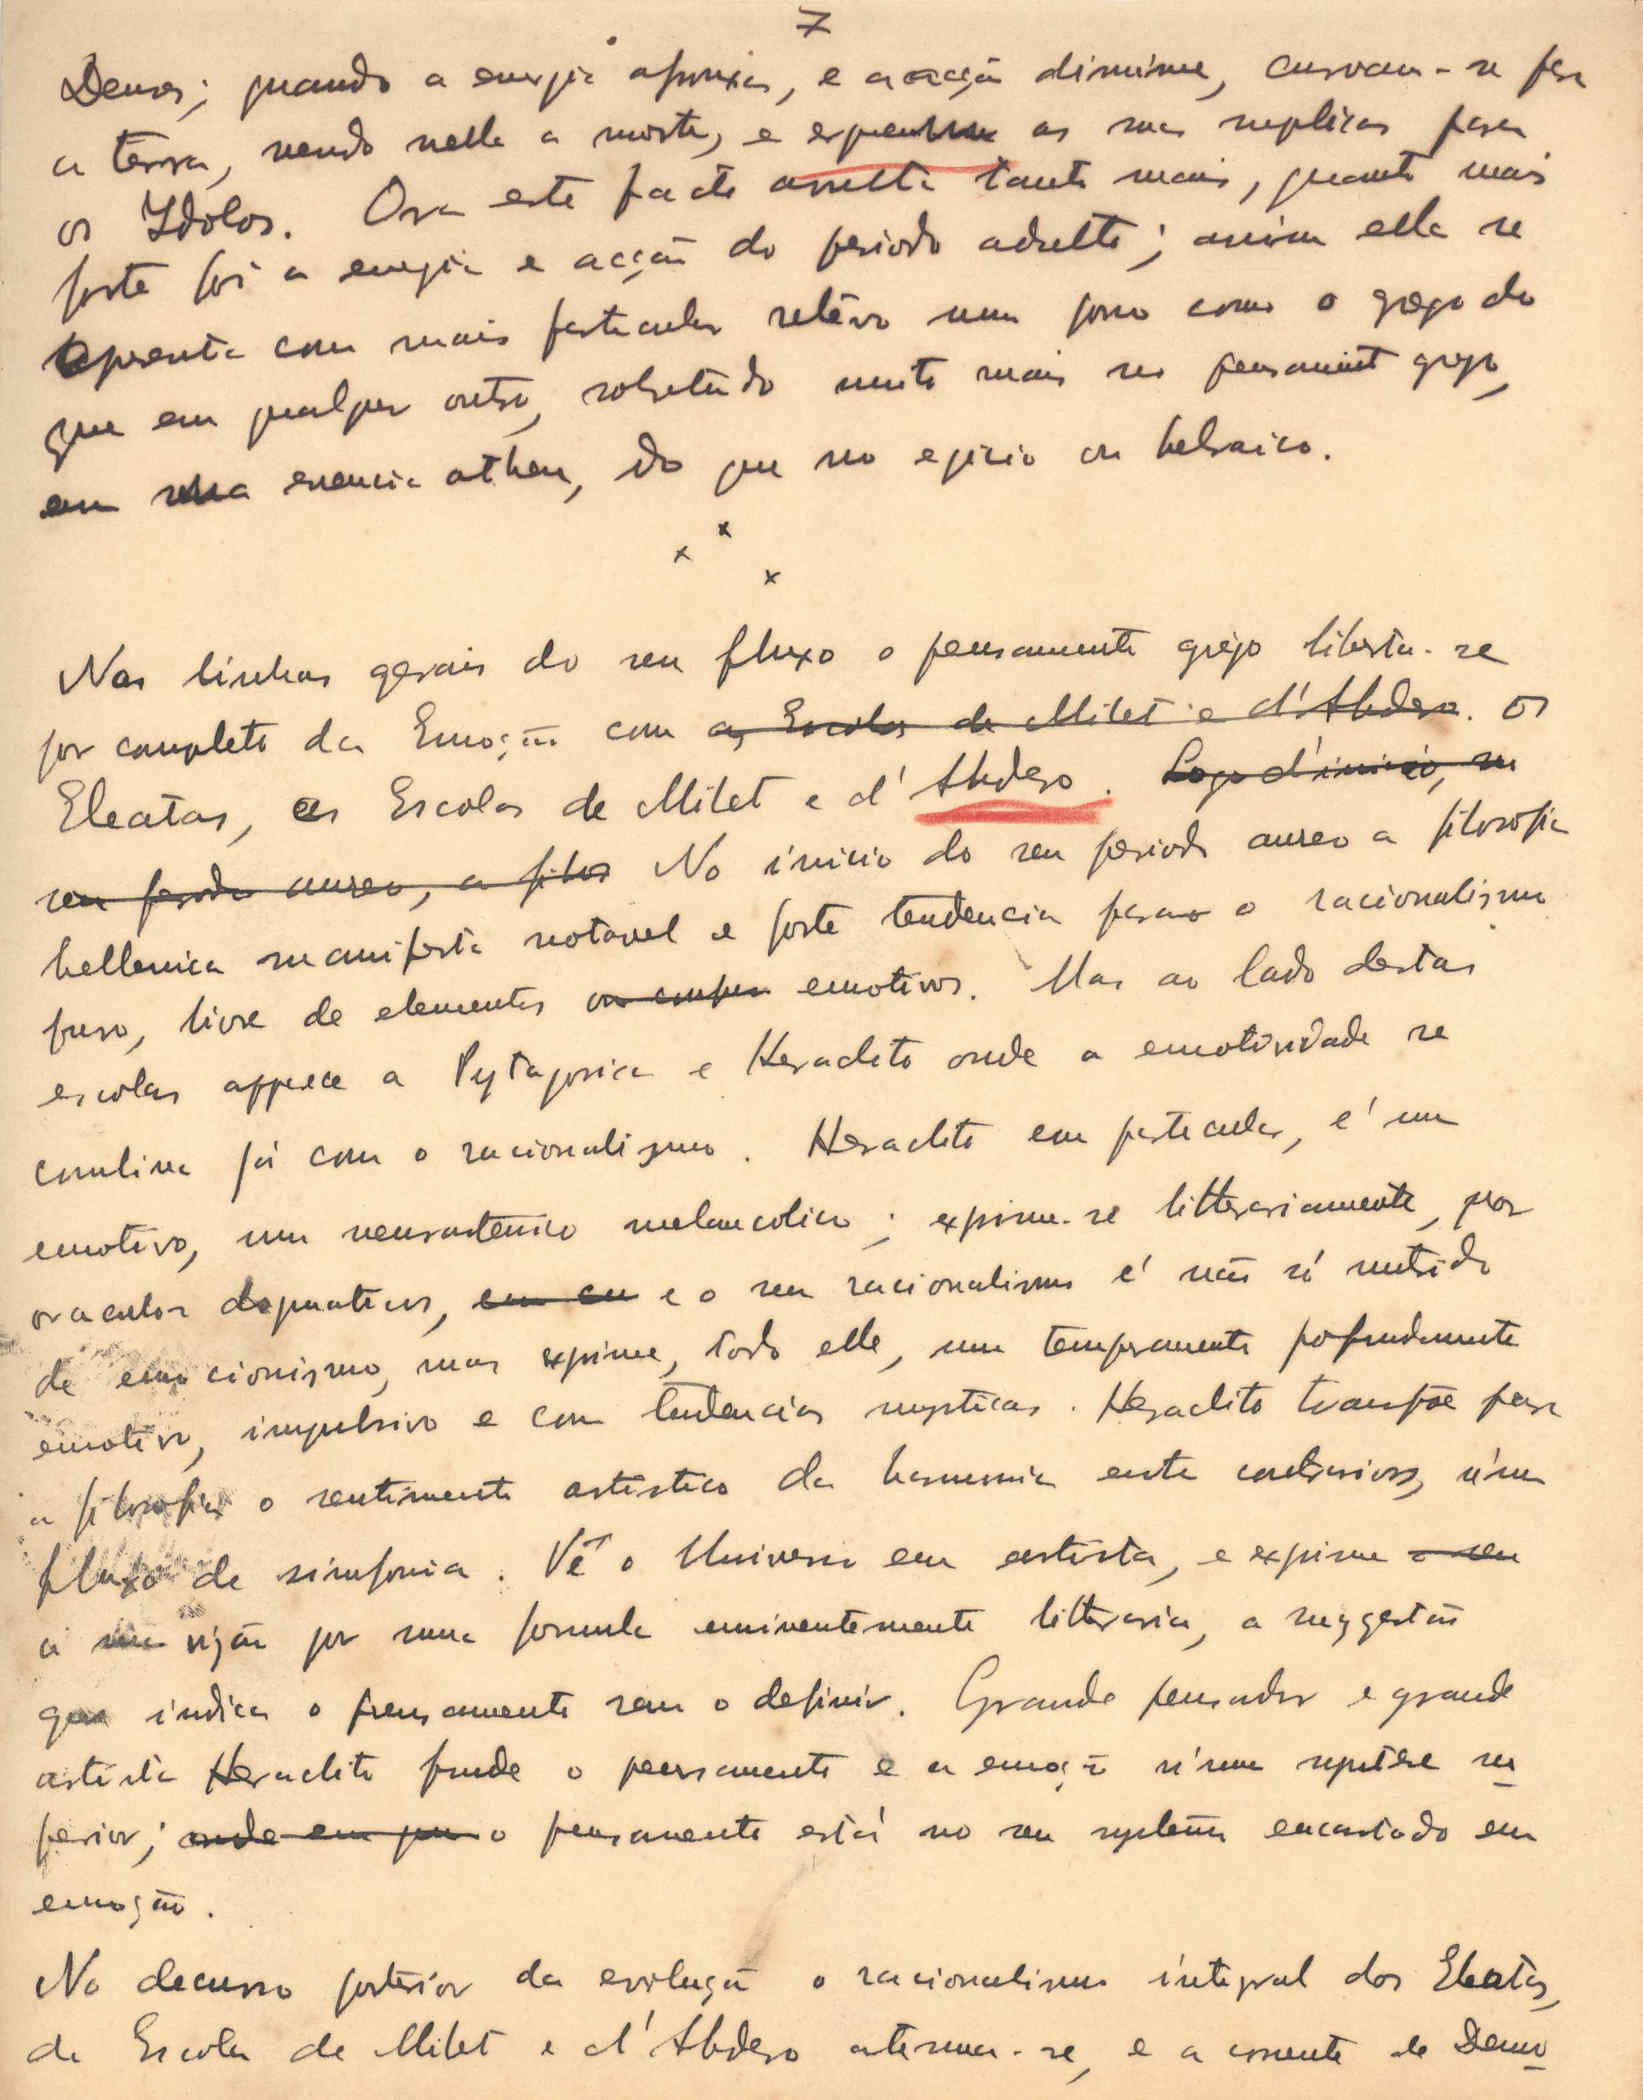 7
Deuses; quando a energia afrouxa, e a acção diminue, curvam-se para
a terra, vendo nella a morte, e erguem as suas suplicas para
os Idolos. Ora este facto avulta tanto mais, quanto mais
forte foi a energia e acção do periodo adulto; assim elle se
apresenta com mais particular relêvo num povo como o grego do
que em qualquer outro, sobretudo muito mais no pensamento grego,
em sua essencia atheu, do que no egicio ou hebraico.
x x x
Nas linhas gerais do seu fluxo o pensamento grêgo liberta-se
por completo da Emoção com as Escolas de Milet e d'Abdera. os
Eleatas, as Escolas de Milet e d'Abdera. Logo d'inicio, no
seu periodo aureo, a filos No inicio do seu periodo aureo a filosofia
hellenica manifesta notavel e forte tendencia para o racionalismo
puro, livre de elementos emotivos. Mas ao lado destas
escolas apparece a Pytagorica e Heraclito onde a emotividade se
combina já com o racionalismo. Heraclito em particular, é um
emotivo, um neurastenico melancolico; exprime-se litterariamente, por
oraculos dogmaticos, em e o seu racionalismo é não só nutrido
de emocionismo, mas exprime, todo elle, um temperamento profundamente
emotivo, impulsivo e com tendencias mysticas. Heraclito transpõe para
a filosofia o sentimento artistico da harmonia entre contrarios, n'um
fluxo de simfonia. Vê o Universo em artista, e exprime o seu
a sua visão por uma formula eminentemente litteraria, a suggestão
que indica o pensamento sem o definir. Grande pensador e grande
artista Heraclito funde o pensamento e a emoção n'uma syntese su
perior; onde em que o pensamento está no seu systema encastado em
emoção.
No decurso posterior da evolução o racionalismo integral dos Eleatas,
da Escola de Milet e d'Abdera atenua-se, e a corrente de Demo